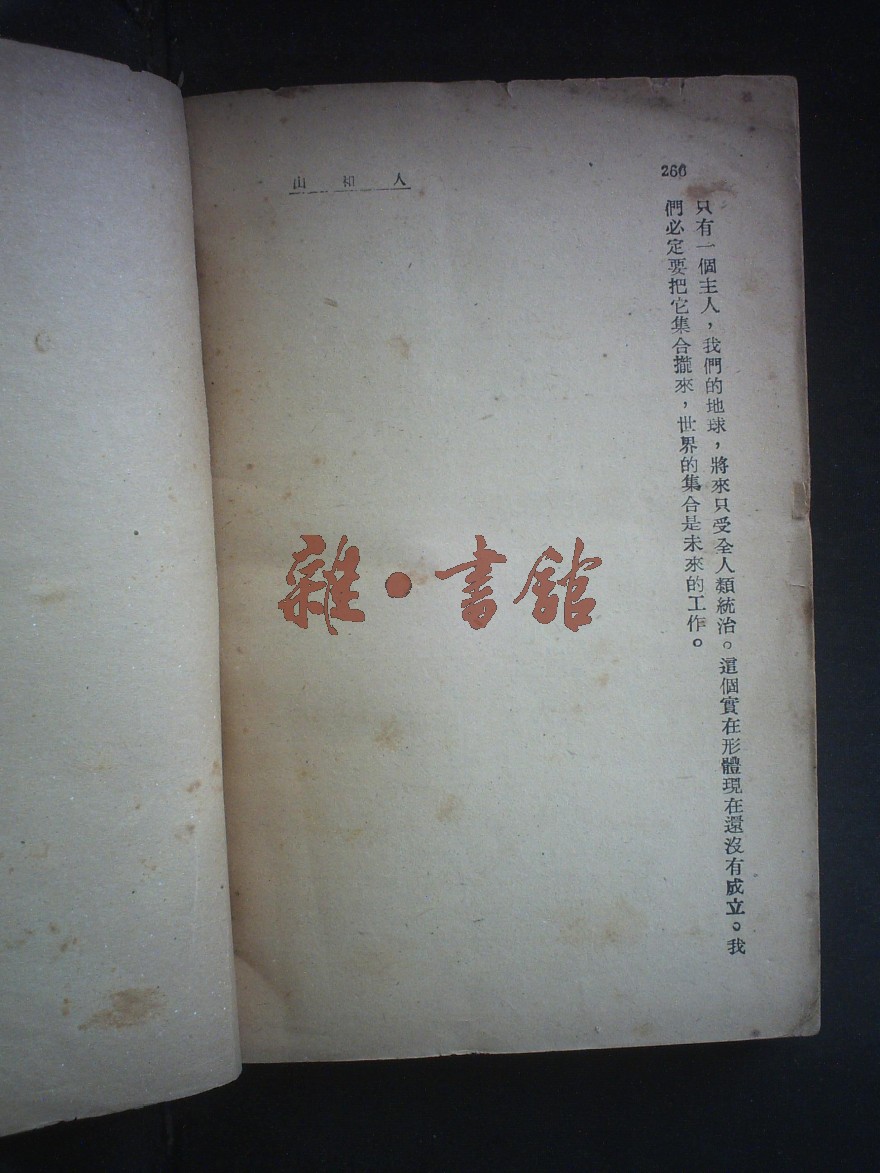 266
人和山
只有一個主人，我們的地球，將來只受全人類統治。這個實在形體現在還沒有成立。我
們必定要把它集合攏來，世界的集合是未來的工作。
雜·書館